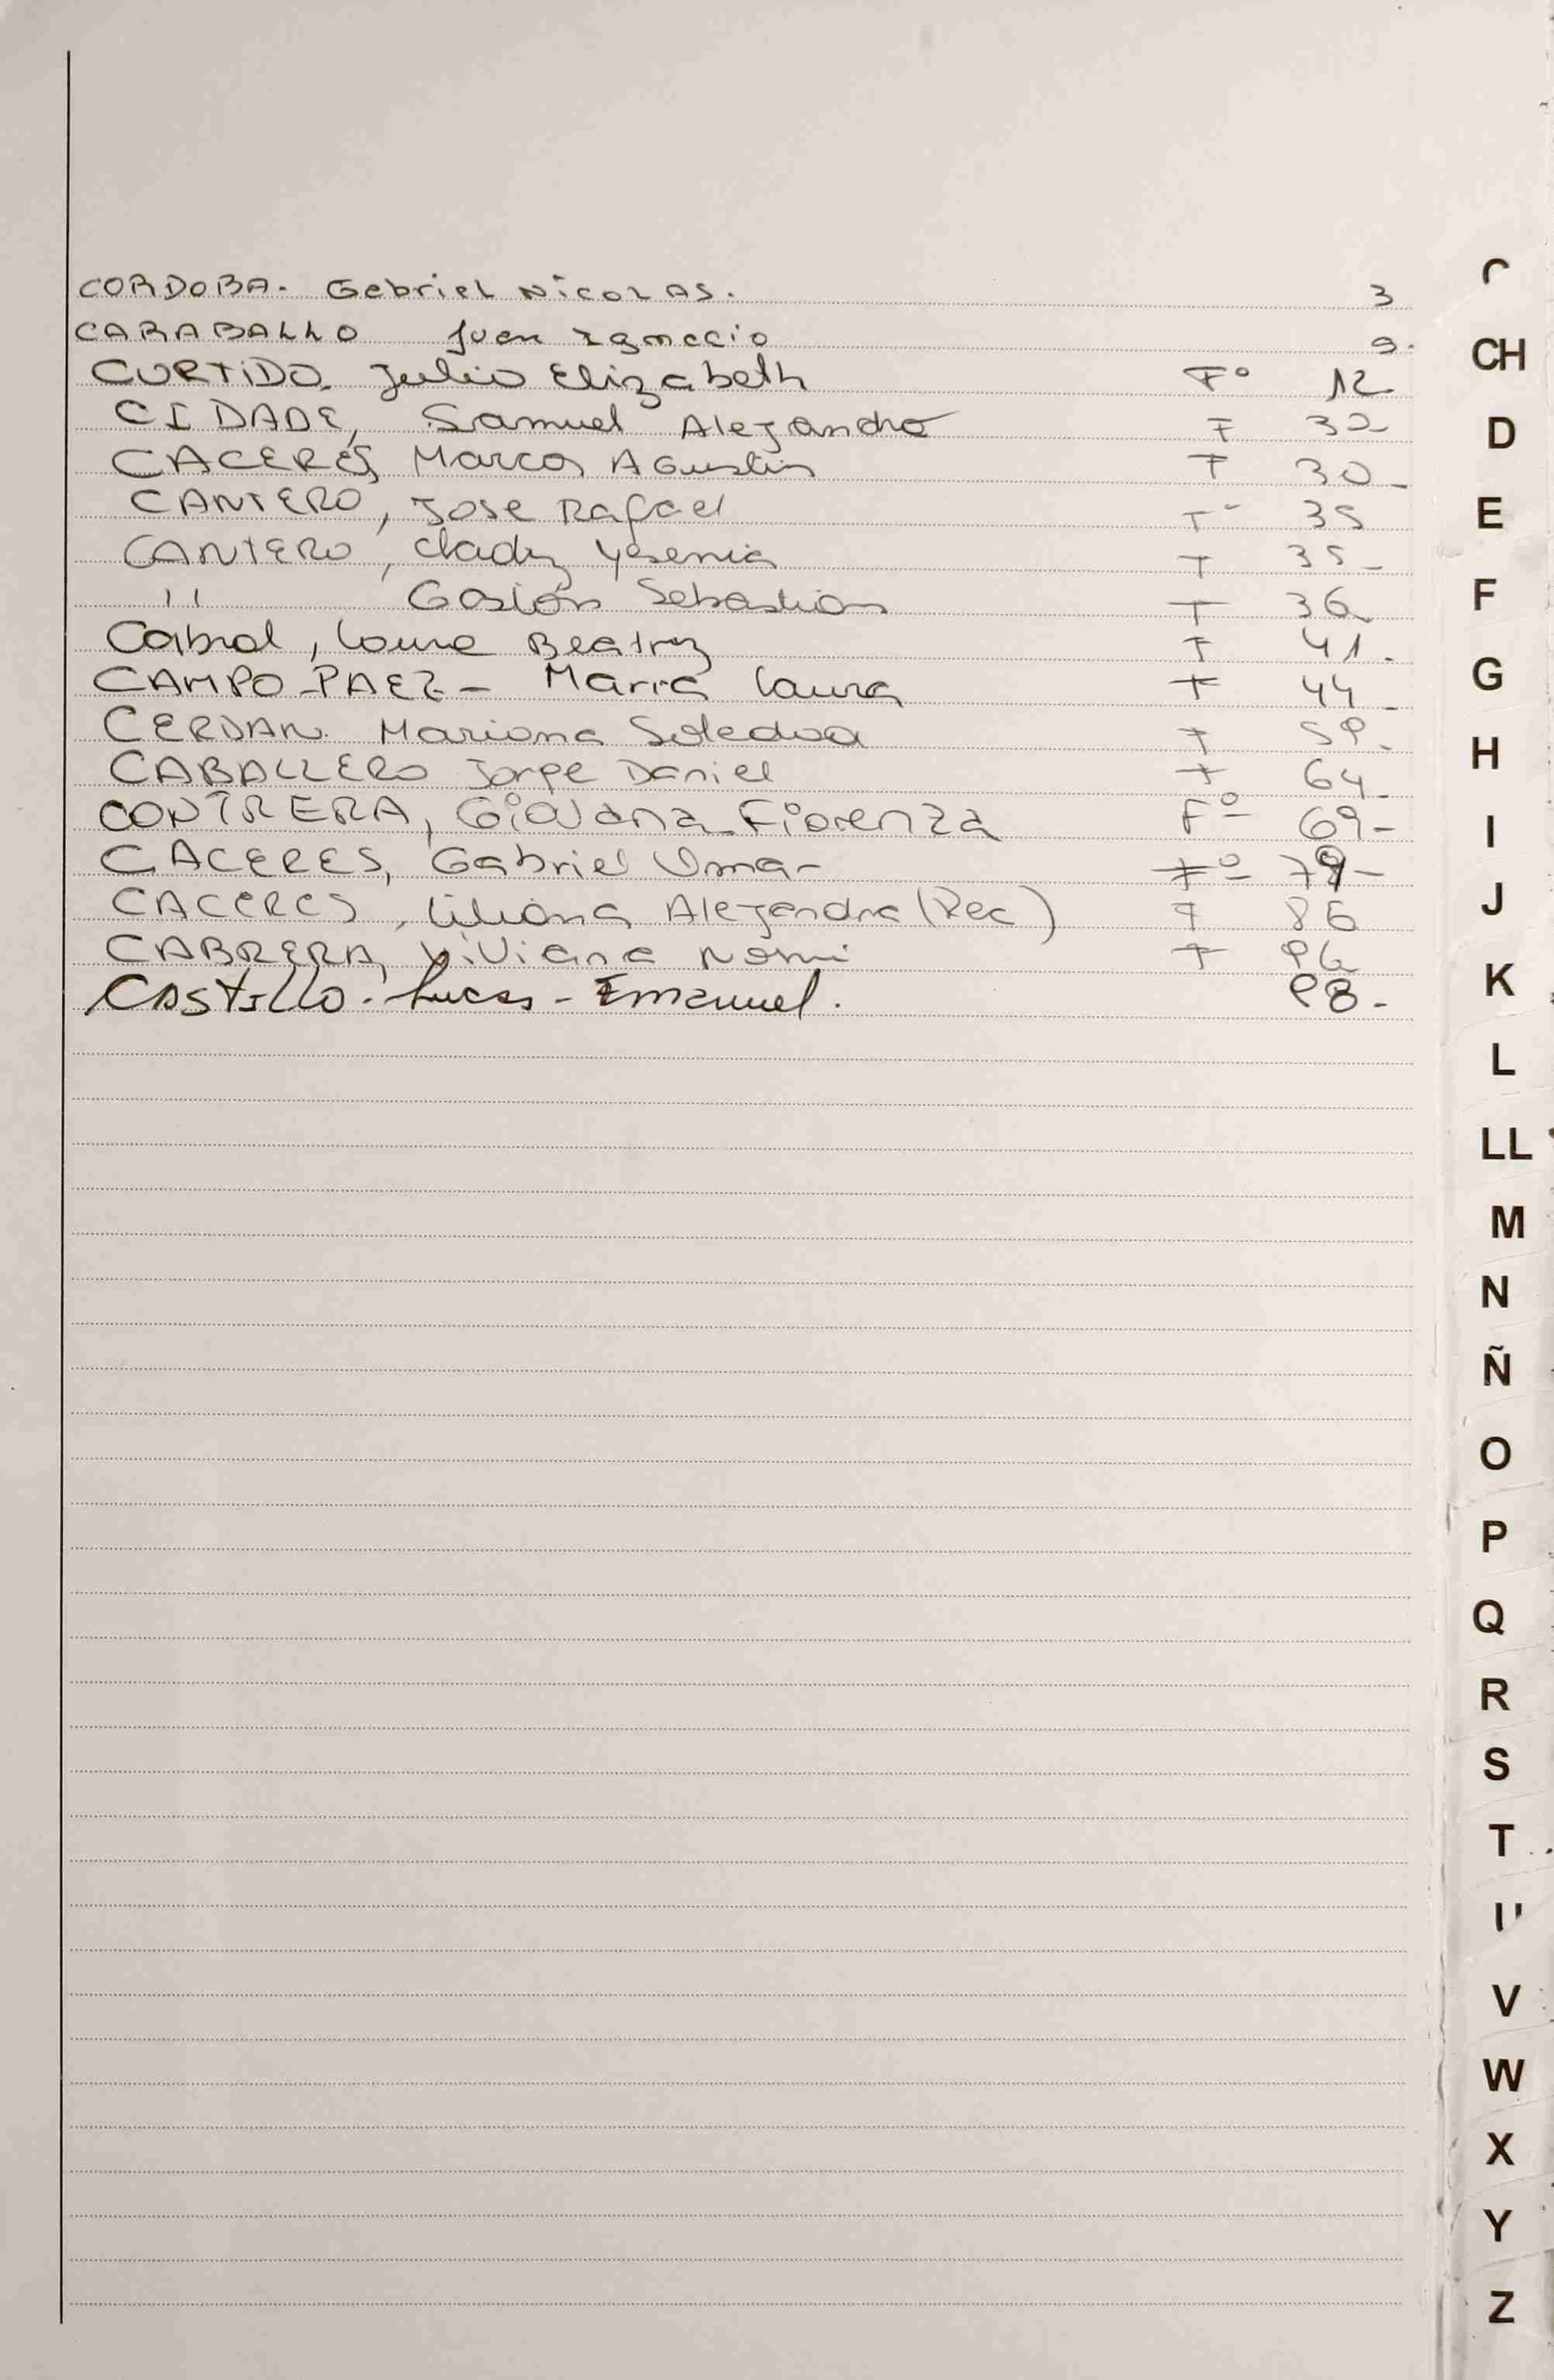 CORDOBA. Gabriel Nicolas. 3
CARABALLO Juan Ignacio 9.
CURTIDO. Julio Elizabeth Fº 12
CIDADE, Samuel Alejandro F 32
CACERES, Marcos Agustin F 30-
CANTERO, Jose Rafael Fº 35
CANTERO, Clady Yesenia F 35-
" Gastón Sebastian F 36
Cabral, Laura Beatriz F 41.
CAMPO-PAEZ- Maria Laura F 44-
CERDAN. Mariana Soledad F 59-
CABALLERO Jorge Daniel F 64-
CONTRERA, Giovana Fiorenza Fº 69-
CACERES, Gabriel Omar Fº 79-
CACERES, Liliana Alejandra (Rec) F 86
CABRERA, Viviana Nomi F 96
CASTILLO. Lucas - Emanuel. 98-
CH
D
E
F
G
H
I
J
K
L
LL
M
N
Ñ
O
P
Q
R
S
T
V
W
X
Y
Z